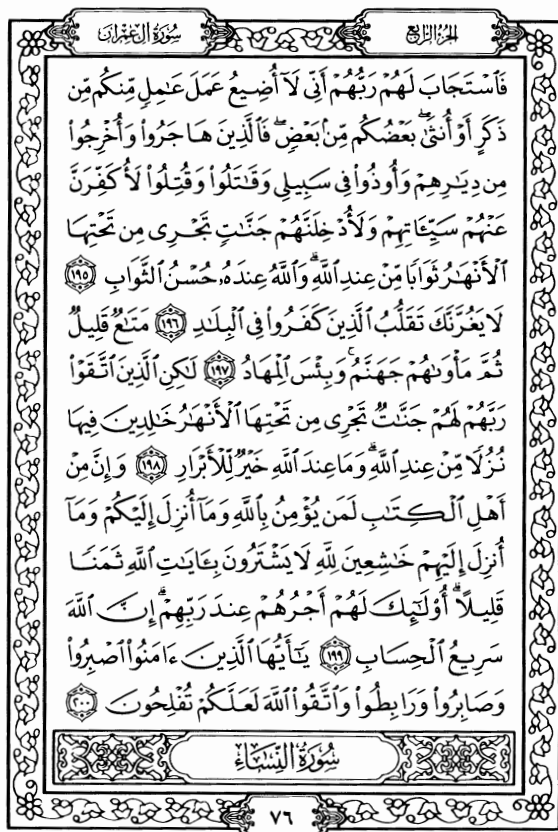 الجزء الرابع
سورة آل عمران
فَٱسۡتَجَابَ لَهُمۡ رَبُّهُمۡ أَنِّي لَآ أُضِيعُ عَمَلَ عَٰمِلٖ مِّنكُم مِّن
ذَكَرٍ أَوۡ أُنثَىٰۖ بَعۡضُكُم مِّنۢ بَعۡضٖۖ فَٱلَّذِينَ هَاجَرُواْ وَأُخۡرِجُواْ
مِن دِيَٰرِهِمۡ وَأُوذُواْ فِي سَبِيلِي وَقَٰتَلُواْ وَقُتِلُواْ لَأُكَفِّرَنَّ
عَنۡهُمۡ سَيِّـَٔاتِهِمۡ وَلَأُدۡخِلَنَّهُمۡ جَنَّٰتٖ تَجۡرِي مِن تَحۡتِهَا
ٱلۡأَنۡهَٰرُ ثَوَابٗا مِّنۡ عِندِ ٱللَّهِۚ وَٱللَّهُ عِندَهُۥ حُسۡنُ ٱلثَّوَابِ ١٩٥
لَا يَغُرَّنَّكَ تَقَلُّبُ ٱلَّذِينَ كَفَرُواْ فِي ٱلۡبِلَٰدِ ١٩٦ مَتَٰعٞ قَلِيلٞ
ثُمَّ مَأۡوَىٰهُمۡ جَهَنَّمُۖ وَبِئۡسَ ٱلۡمِهَادُ ١٩٧ لَٰكِنِ ٱلَّذِينَ ٱتَّقَوۡاْ
رَبَّهُمۡ لَهُمۡ جَنَّٰتٞ تَجۡرِي مِن تَحۡتِهَا ٱلۡأَنۡهَٰرُ خَٰلِدِينَ فِيهَا
نُزُلٗا مِّنۡ عِندِ ٱللَّهِۗ وَمَا عِندَ ٱللَّهِ خَيۡرٞ لِّلۡأَبۡرَارِ ١٩٨ وَإِنَّ مِنۡ
أَهۡلِ ٱلۡكِتَٰبِ لَمَن يُؤۡمِنُ بِٱللَّهِ وَمَآ أُنزِلَ إِلَيۡكُمۡ وَمَآ
أُنزِلَ إِلَيۡهِمۡ خَٰشِعِينَ لِلَّهِ لَا يَشۡتَرُونَ بِـَٔايَٰتِ ٱللَّهِ ثَمَنٗا
قَلِيلًاۚ أُوْلَٰٓئِكَ لَهُمۡ أَجۡرُهُمۡ عِندَ رَبِّهِمۡۗ إِنَّ ٱللَّهَ
سَرِيعُ ٱلۡحِسَابِ ١٩٩ يَٰٓأَيُّهَا ٱلَّذِينَ ءَامَنُواْ ٱصۡبِرُواْ
وَصَابِرُواْ وَرَابِطُواْ وَٱتَّقُواْ ٱللَّهَ لَعَلَّكُمۡ تُفۡلِحُونَ ٢٠٠
سورة النساء
٧٦